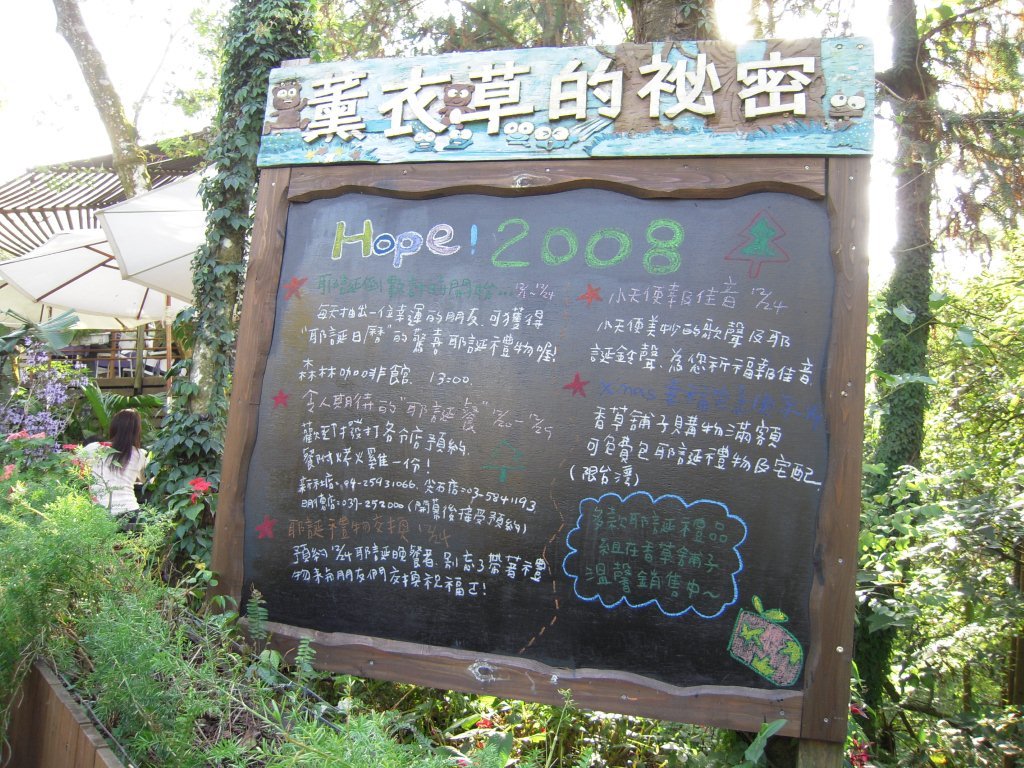 薰衣草的祕密
Hope! 2008
耶誕倒數計時開始... 12/1~12/24
每天抽出一位幸運的朋友,可獲得
"耶誕日曆"的驚喜耶誕禮物喔!
森林咖啡館 13:00
令人期待的"耶誕餐" 12/20-12/25
歡迎撥打各店預約
餐附烤火雞一份!
新社店:04-25931066.尖石店:03-5841193
明德店:037-252000(開幕後接受預約)
耶誕禮物交換 12/24
預約12/24耶誕晚餐者,別忘了帶著禮
物和朋友們交換祝福唷!
小天使報佳音 12/24
小天使美妙的歌聲及耶
誕鈴聲為您祈福報佳音
x'mas
香草舖子購物滿額
可免費包耶誕禮物及宅配
(限台灣)
多款耶誕禮品
組在香草舖子
溫馨銷售中~